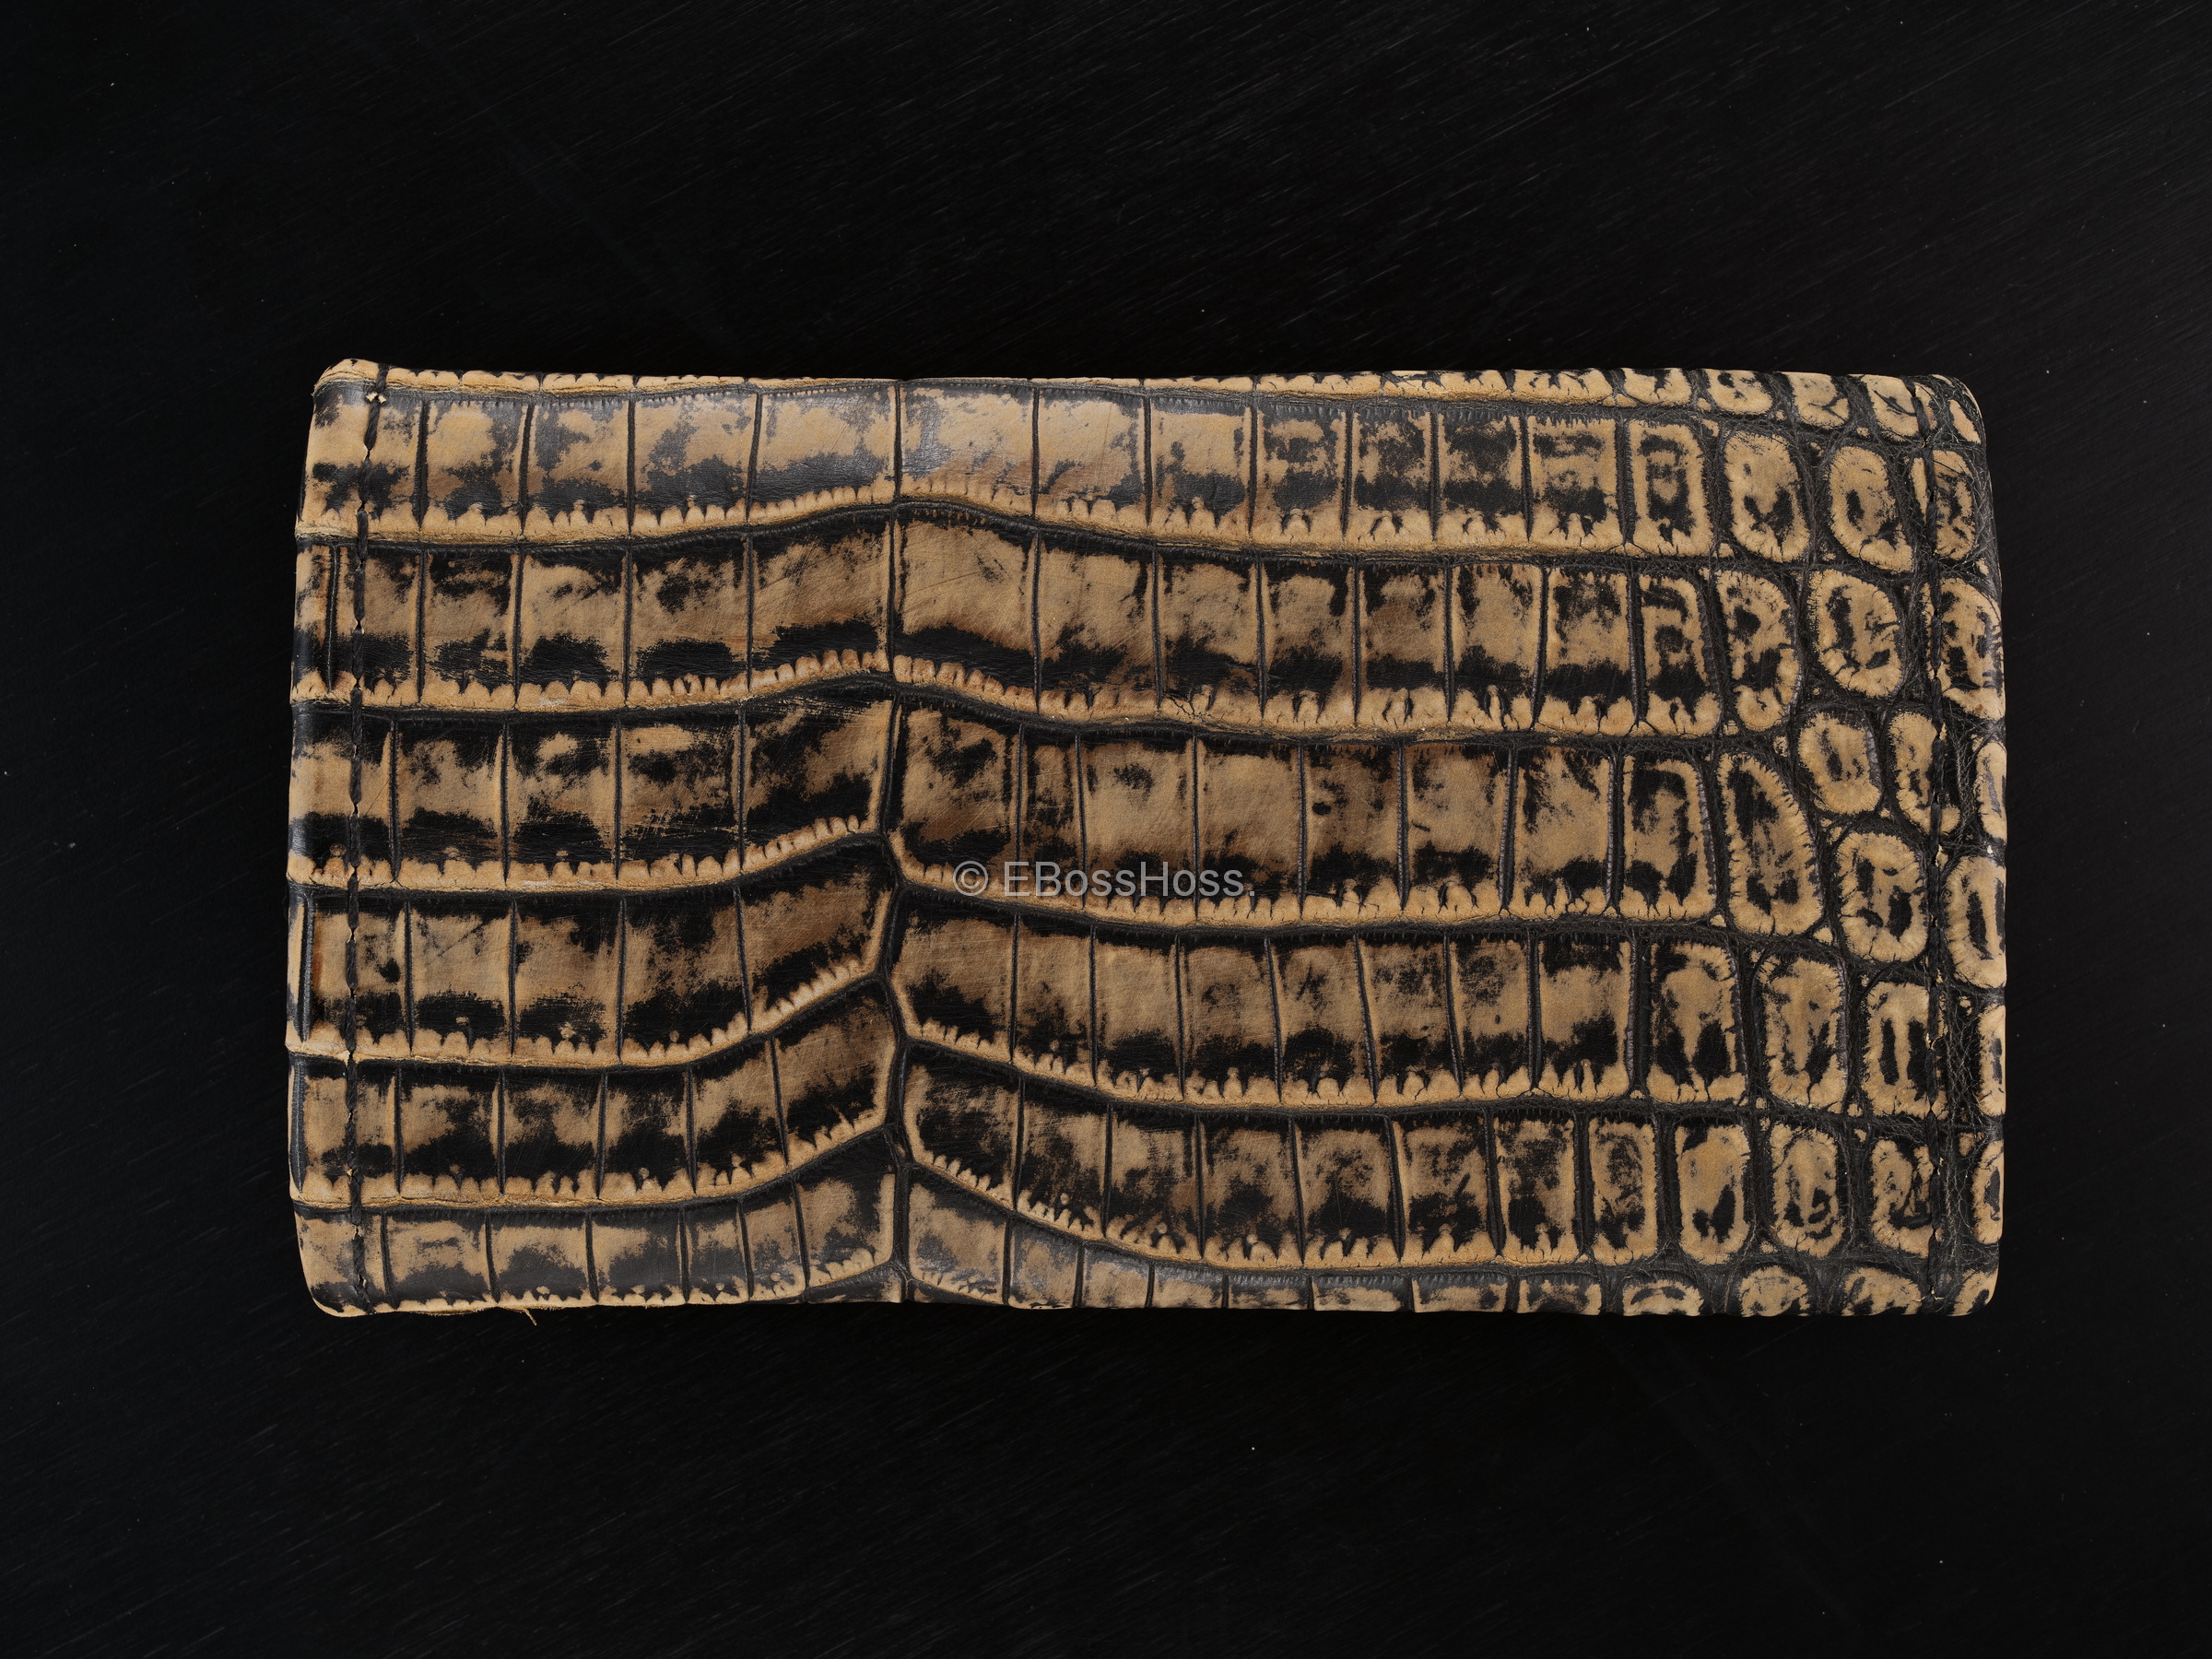 © EBossHoss.